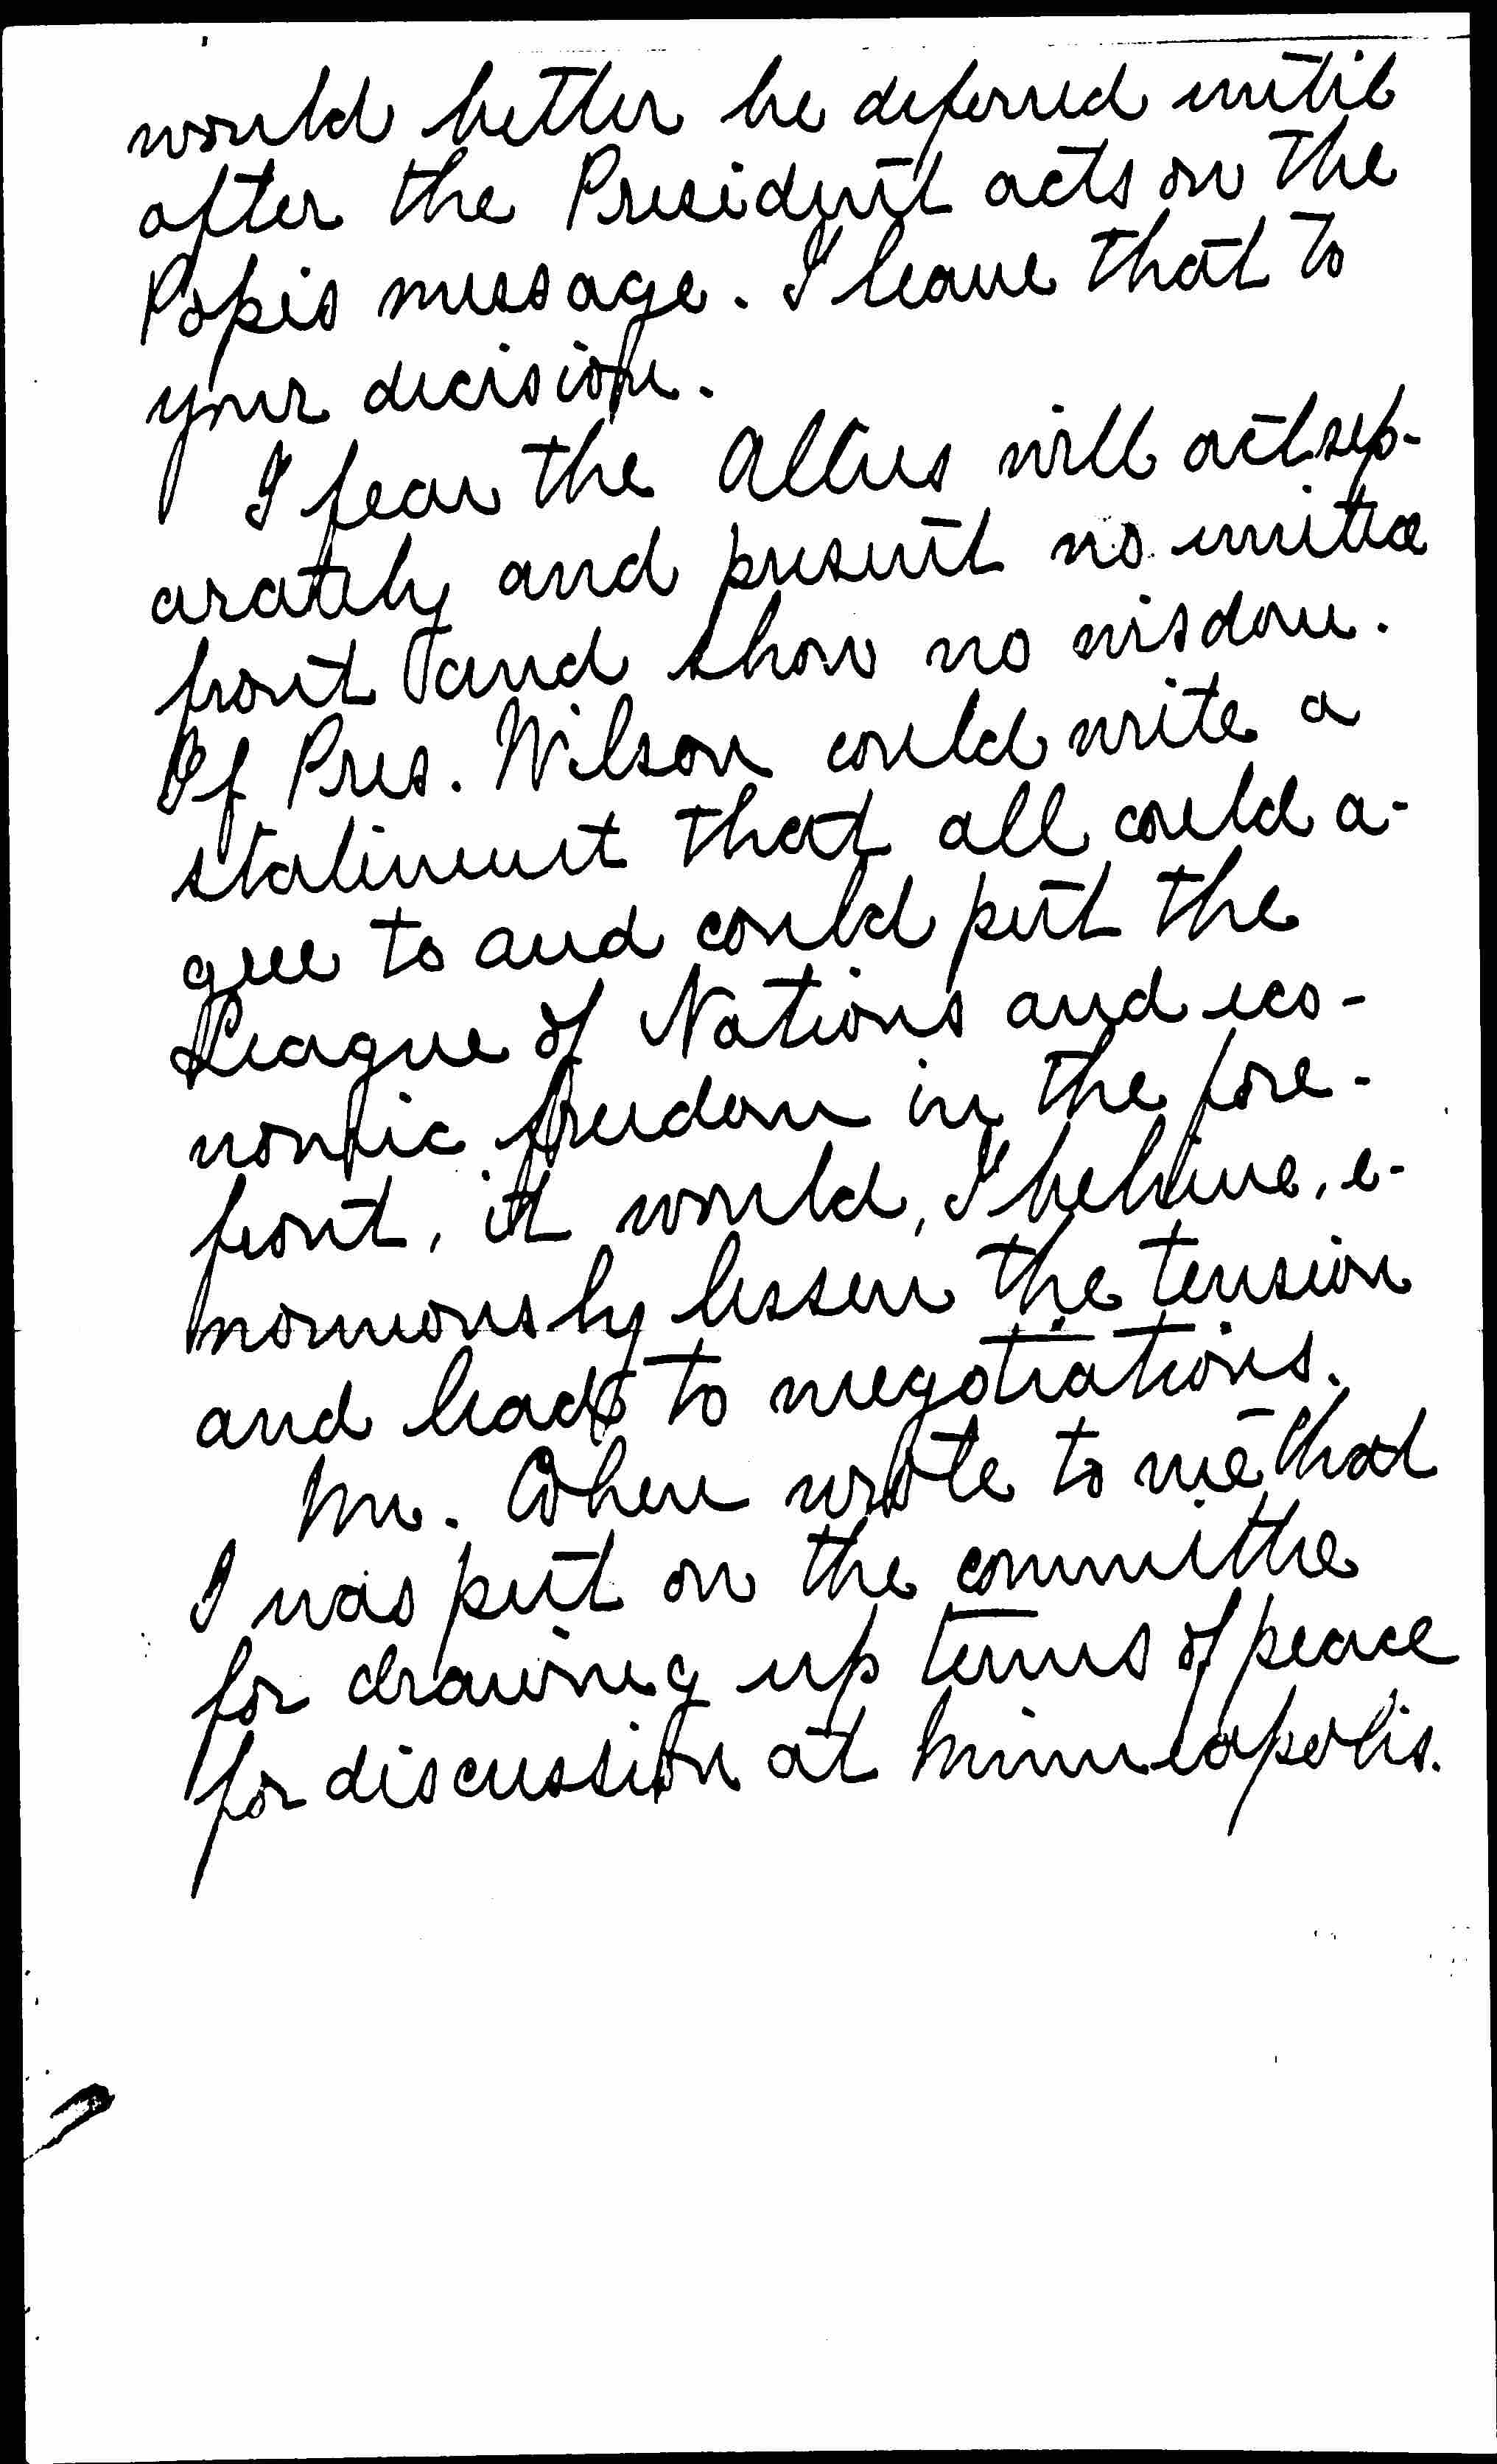 would better be deferred until
after the President acts on the
Pope's message. I leave that to
your decision.
I fear the Allies will act sep-
arately and present no united
front and show no wisdom.
If Pres. Wilson could write a
statement that all could a-
gree to and could put the
League of Nations and eco-
nomic freedom in the fore-
front, it would, I believe, e-
normously lessen the tension
and lead to negotiations.
Mr. Cohen wrote to me that
I was put on the committee
for drawing up terms of peace
for discussion at Minneapolis.